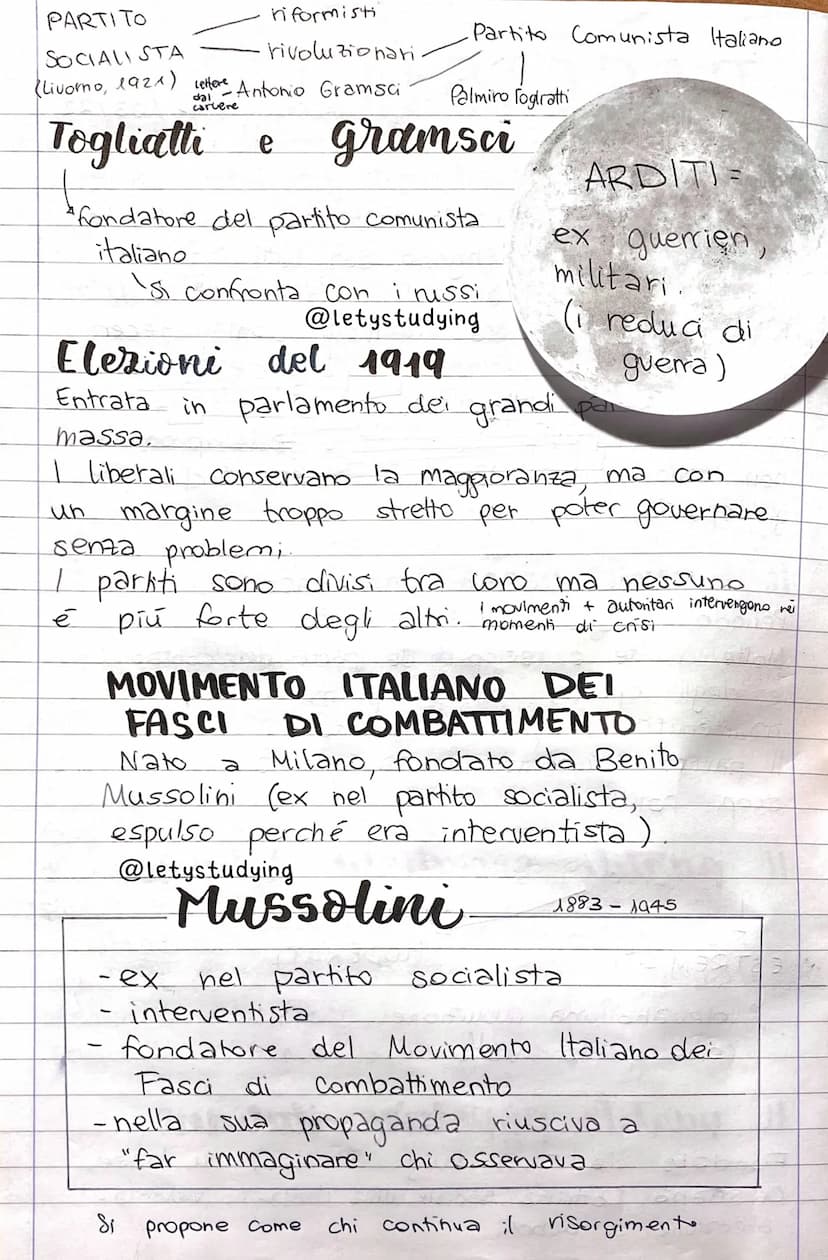 PARTITO
SOCIALISTA
(Livorno, 1921)
riformisti
rivoluzionari
lettere
dal
carcere
Antonio Gramsci
Partito Comunista Italiano
Palmiro Togliatti
Togliatti e Gramsci
fondatore del partito comunista
italiano
si confronta con i russi
@letystudying
ARDITI =
ex guerrieri,
militari.
(i reduci di
guerra)
Elezioni del 1919
Entrata in parlamento dei grandi
massa.
I liberali conservano la maggioranza, ma con
un margine troppo stretto per poter governare
senza problemi.
I partiti sono divisi tra loro ma nessuno
é piú forte degli altri.
i movimenti + autoritari intervengono nei
momenti di crisi
MOVIMENTO ITALIANO DEI
FASCI DI COMBATTIMENTO
Nato a Milano, fondato da Benito
Mussolini (ex nel partito socialista,
espulso perché era interventista).
@letystudying
Mussolini 1883 - 1945
- ex nel partito socialista
- interventista
- fondatore del Movimento Italiano dei
Fasci di combattimento
- nella sua propaganda riusciva a
"far immaginare" chi osservava
Si propone come chi continua il risorgimento